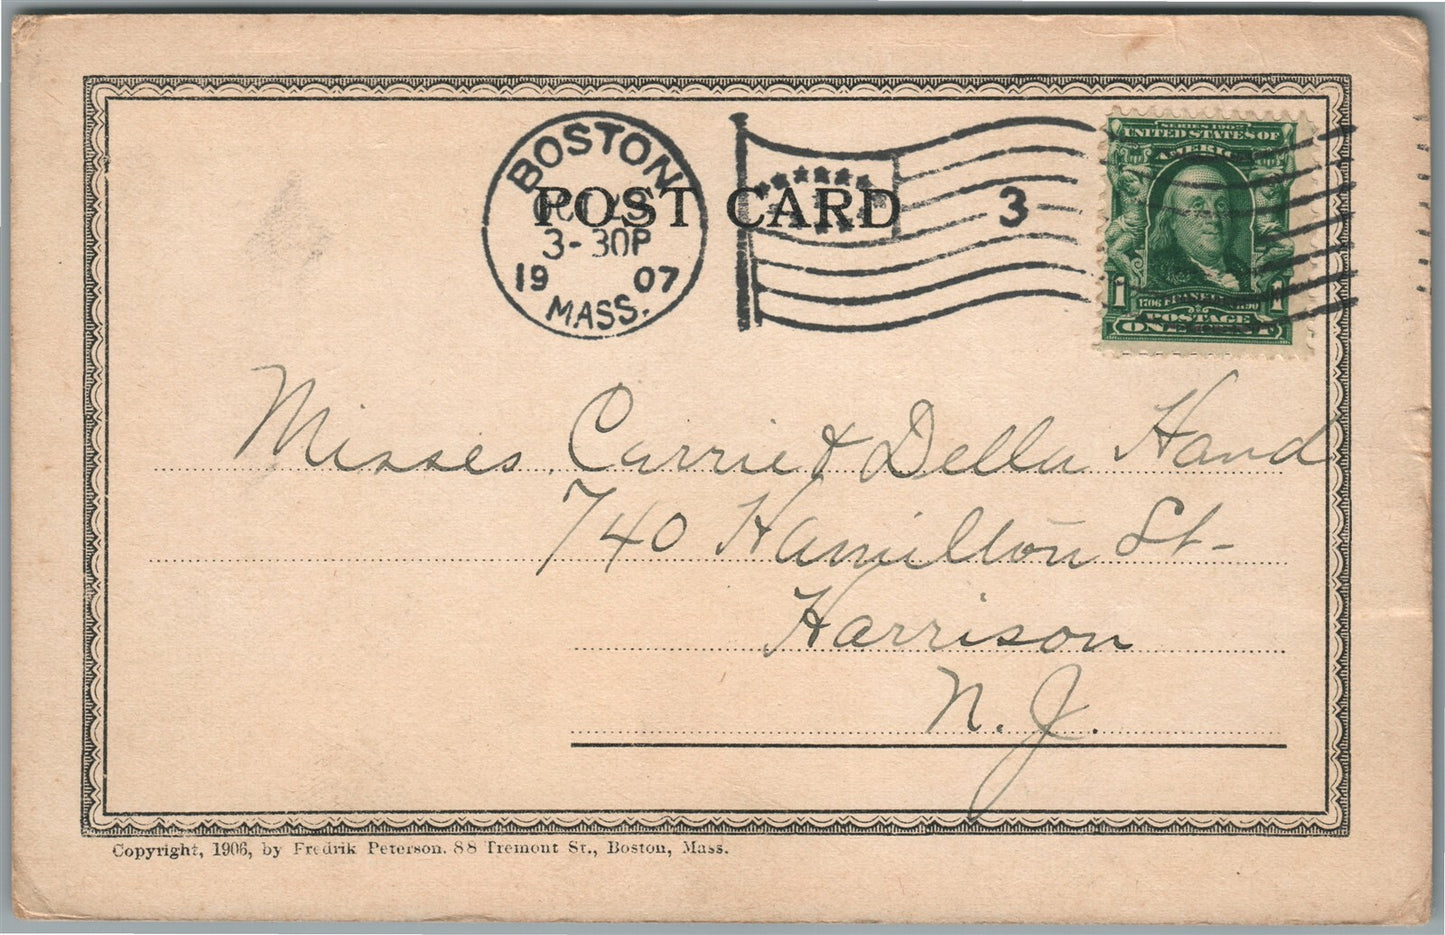 BOSTON
3-30P
19 07
MASS.
POST CARD
3
SERIES 1902
UNITED STATES OF
AMERICA
1 1
1706 FRANKLIN 1790
POSTAGE
ONE CENT
Misses Carrie & Della Hand
740 Hamilton St-
Harrison
N. J.
Copyright, 1906, by Fredrik Peterson. 88 Tremont St., Boston, Mass.